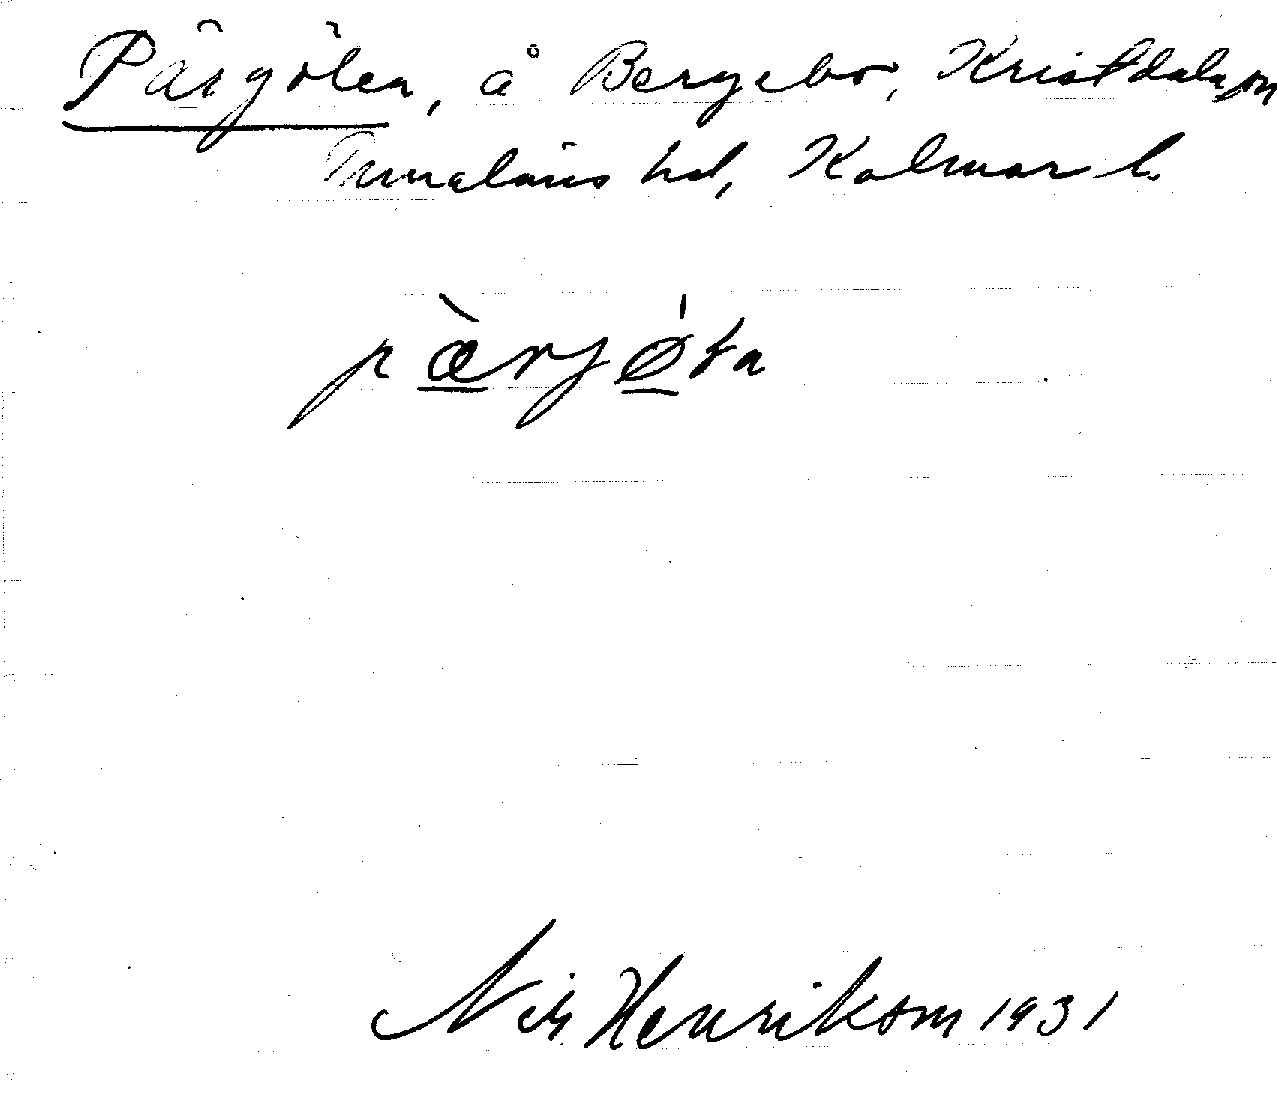 Pärgölen, å Bergebo, Kristdala sn
Tunaläns hd, Kalmar l.
pærjøta
Nils Henriksson 1931